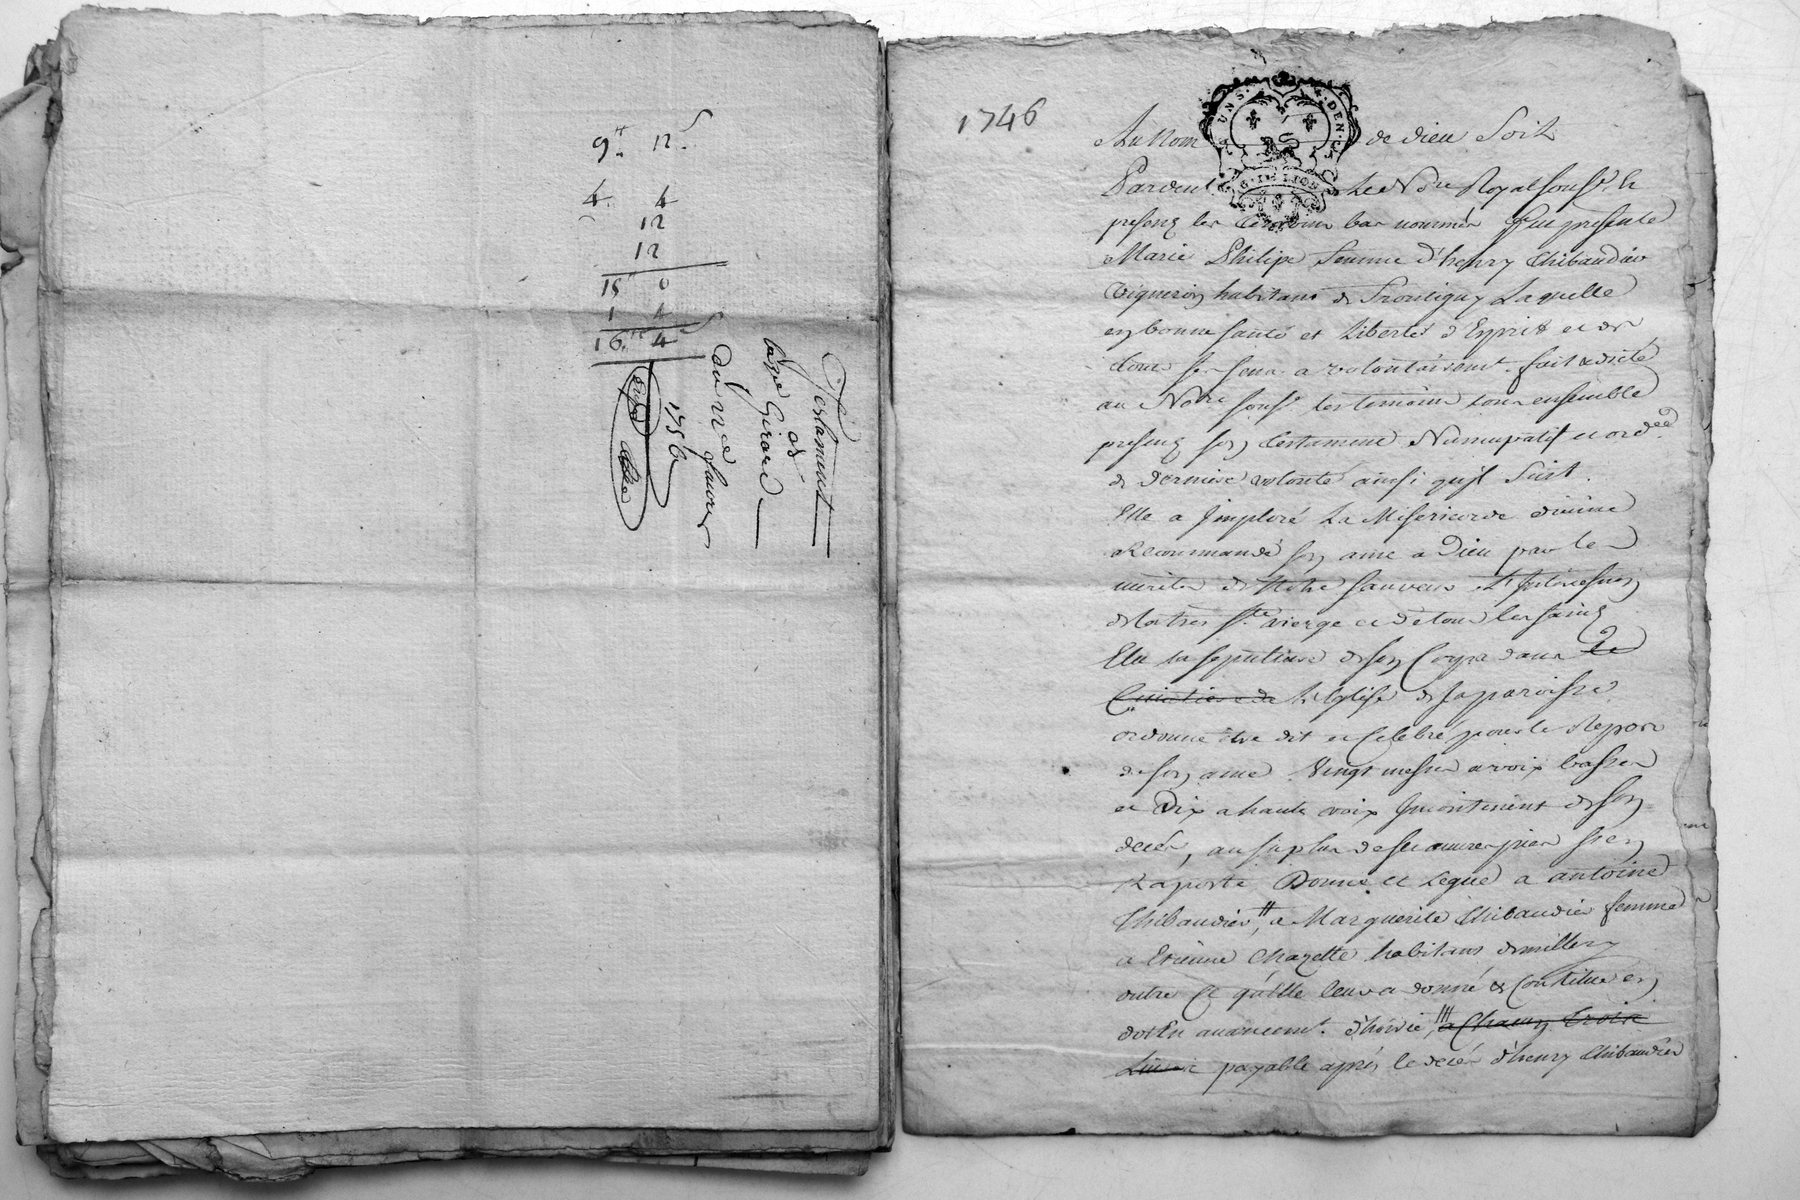 9.tt 12 s
4. 4
12
12
15 0
1 4
16.tt 4 s
Testament
de
Girard
Du
1756
1746
UN S. 4. DEN.
G. DE LION
Au Nom de dieu Soit
Pardevt Le Nore Royal soussé &
presens les temoins bas nommés fut presente
Marie Philipe femme d'henry Thibaudier
Vigneron habitans de Laquelle
en bonne santé et Liberté d'Esprit et de
tous ses sens a volontairemt. fait & dicté
au Nore souse. les temoins tous ensemble
presens son testament Nuncupatif et ordce.
de derniere volonté ainsi qu'il Suit.
Elle a Imploré La Misericorde divine
Recommandé son ame a Dieu par les
merites de Notre sauveur L'Intercession
de la tres Ste. vierge et de tous les saints
Elu sa sepulture de son Corps dans Le
Cimetiere de L'Eglise de sa paroisse
ordonne etre dit et Celebré pour le Repos
de son ame Vingt messes a voix basses
et Dix a haute voix Incontinent de son
decés, au surplus de ses œuvres pies s'en
Raporte, Donne et Legue a antoine
Thibaudier, # a Marguerite Thibaudier femme
a Etienne Chazette habitans de millery
outre Ce qu'elle leur a donné & Constitué en
dot En avancemt. d'hoirie, a Chacun trois
Livres payable aprés le decés d'henry Thibaudier